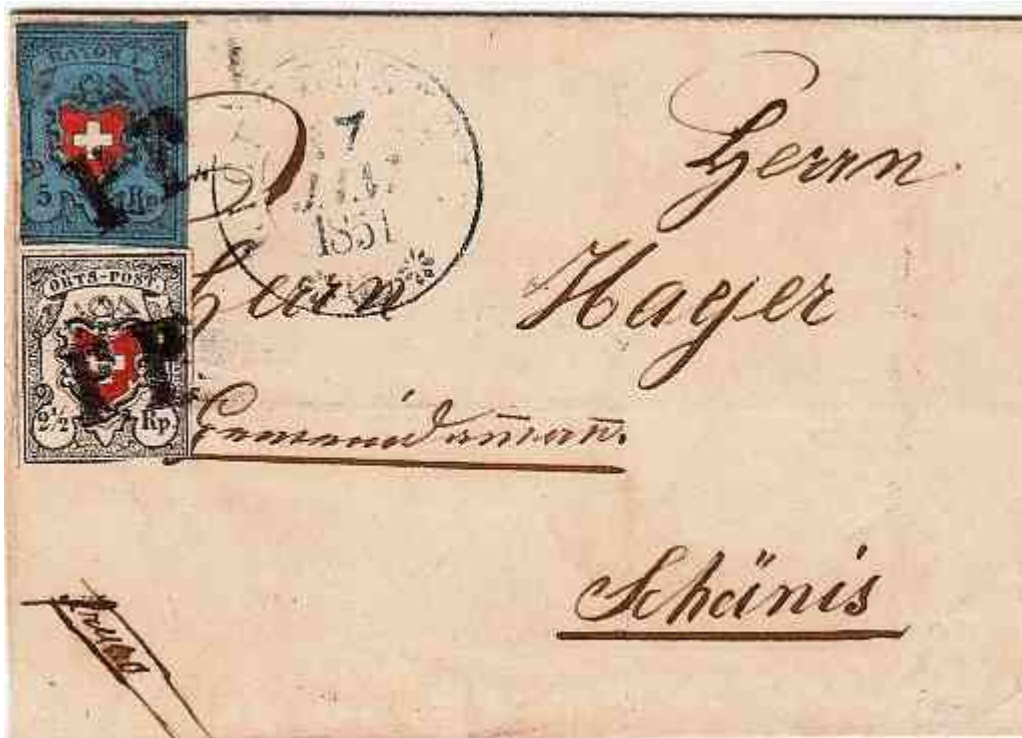 RAYON I
5 Rp
7
1851
ORTS-POST
2½ Rp.
Herrn
Herrn Hager
Gemeindamann.
Schänis